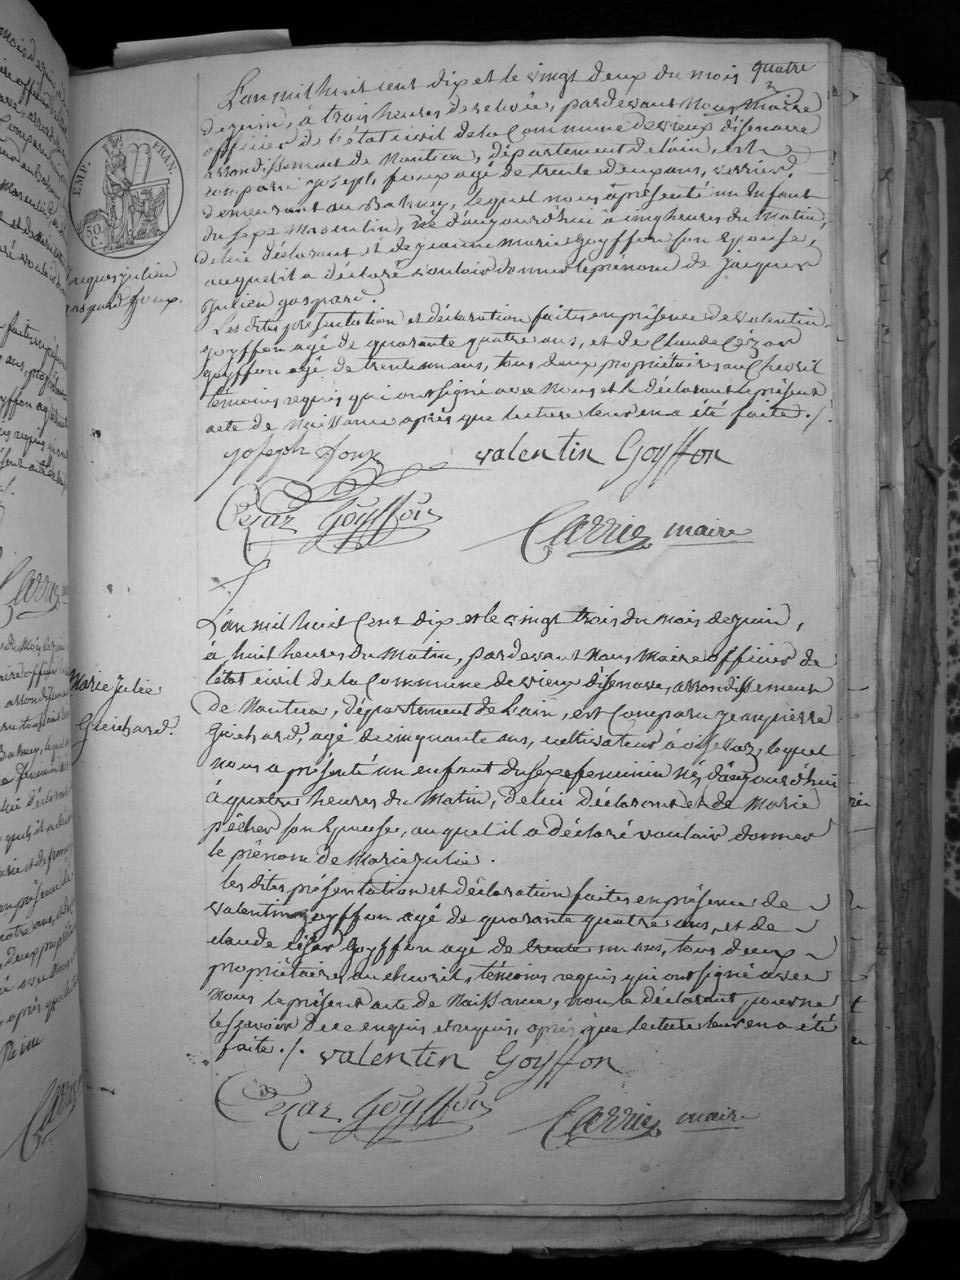 quatre
L'an mil huit cent dix et le vingt deux du mois
de juin, à trois heures de relevée, pardevant Nous Maire
officier de l'état civil de la Commune de vieux d'isenave
arrondissement de Nantua, département de lain, est
comparu joseph foux agé de trente deux ans, verrier,
demeurant au Balmey, lequel nous a présenté un Enfant
du sexe Masculin, né d'aujourd'hui à cinq heures du Matin,
de lui déclarant et de jeanne Marie Goyffon son Epouse,
auquel il a déclaré vouloir donner le prénom de Jacques
Julien gaspard.
Les dites présentation et déclaration faites en présence de valentin
goyffon agé de quarante quatre ans, et de Claude Cézar
goyffon agé de trente un ans, tous deux propriétaires au Chevril
témoins requis qui ont signé avec Nous et le déclarant le présent
acte de Naissance après que lecture leur en a été faite ./.
EMP. FRAN.
50.
C.
jacques julien
gaspard foux.
joseph foux valentin Goyffon
Cezar Goyffon
Carrier maire
L'an mil huit Cent dix et le vingt trois du mois de juin,
à huit heures du Matin, pardevant Nous Maire officier de
l'état civil de la Commune de vieux d'isenave, arrondissement
de Nantua, département de L'ain, est Comparu jean pierre
Guichard, agé de cinquante ans, cultivateur à lequel
nous a présenté un enfant du sexe feminin né d'aujourd'hui
à quatre heures du Matin, de lui déclarant et de Marie
pêcher son Epouse, auquel il a déclaré vouloir donner
le prénom de Marie julie.
Marie julie
Guichard.
les dites présentation et déclaration faites en présence de
valentin goyffon agé de quarante quatre ans, et de
claude cézar Goyffon agé de trente un ans, tous deux
propriétaires au chevril, témoins requis qui ont signé avec
nous le présent acte de Naissance, non le déclarant pour ne
le savoir de ce enquis et requis, après que lecture leur en a été
faite ./. valentin Goyffon
Cezar Goyffon
Carrier maire